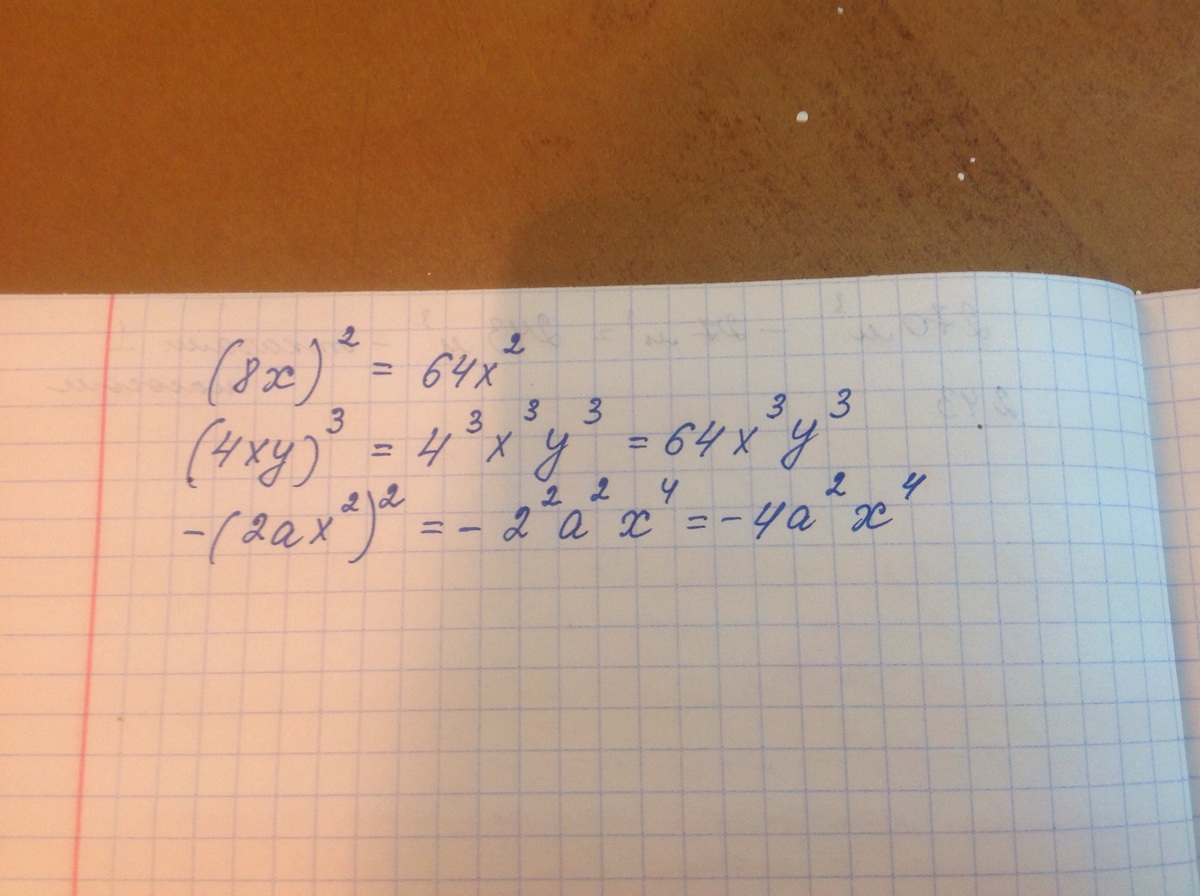 (8x)² = 64x²
(4xy)³ = 4³x³y³ = 64x³y³
-(2ax²)² = - 2²a²x⁴ = -4a²x⁴